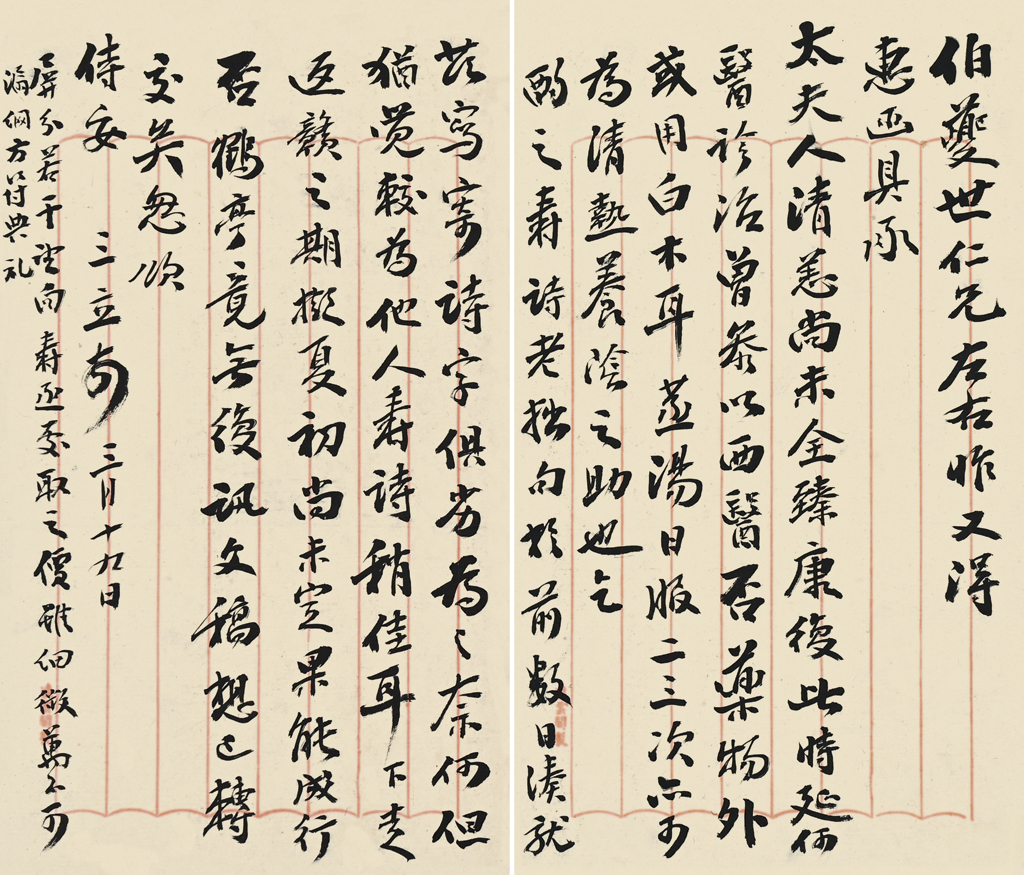 伯夔世仁兄左右昨又得
惠函具承
太夫人清恙尚未全臻康復此時延何
醫診治曾參以西醫否藥物外
或用白木耳蒸湯日服二三次亦可
為清熱養陰之助也乞
酌之壽詩老拙句於前數日湊就
茲寫寄詩字俱劣為之奈何但
猶覺較為他人壽詩稍佳耳下走
返贛之期擬夏初尚未定果能成行
否鶴亭竟無後訊文稿想已轉
交矣忽頌
侍安 三立頓 三月十九日
屏分若干望向壽丞處取之價雖細微萬不可
漏網方符典礼